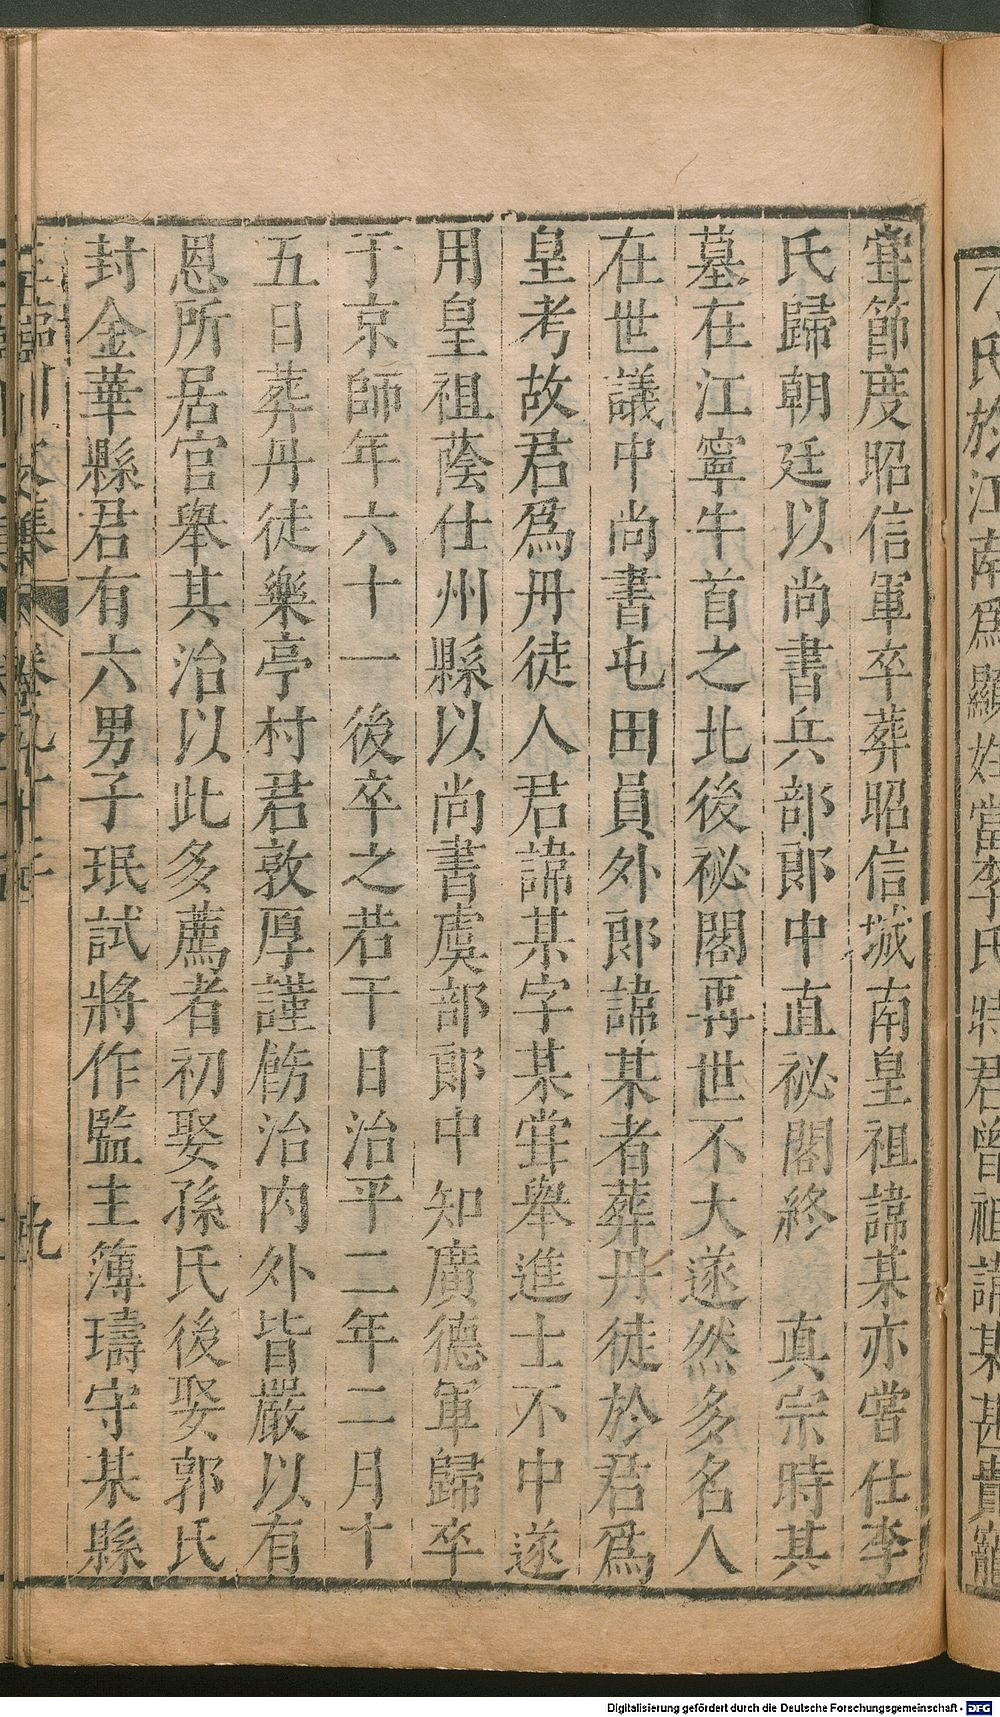 嘗節度昭信軍卒葬昭信城南皇祖諱某亦嘗仕李
氏歸朝廷以尚書兵部郎中直祕閣終 真宗時其
墓在江寧牛首之北後祕閣再世不大遂然多名人
在世議中尚書屯田員外郎諱某者葬丹徒於君爲
皇考故君爲丹徒人君諱某字某嘗舉進士不中遂
用皇祖蔭仕州縣以尚書虞部郎中知廣德軍歸卒
于京師年六十一後卒之若干日治平二年二月十
五日葬丹徒樂亭村君敦厚謹飭治内外皆嚴以有
恩所居官舉其治以此多薦者初娶孫氏後娶郭氏
封金華縣君有六男子珉試將作監主簿璹守某縣
氏於江南爲顯姓當李氏時君曾祖諱某甚貴寵
Digitalisierung gefördert durch die Deutsche Forschungsgemeinschaft - DFG